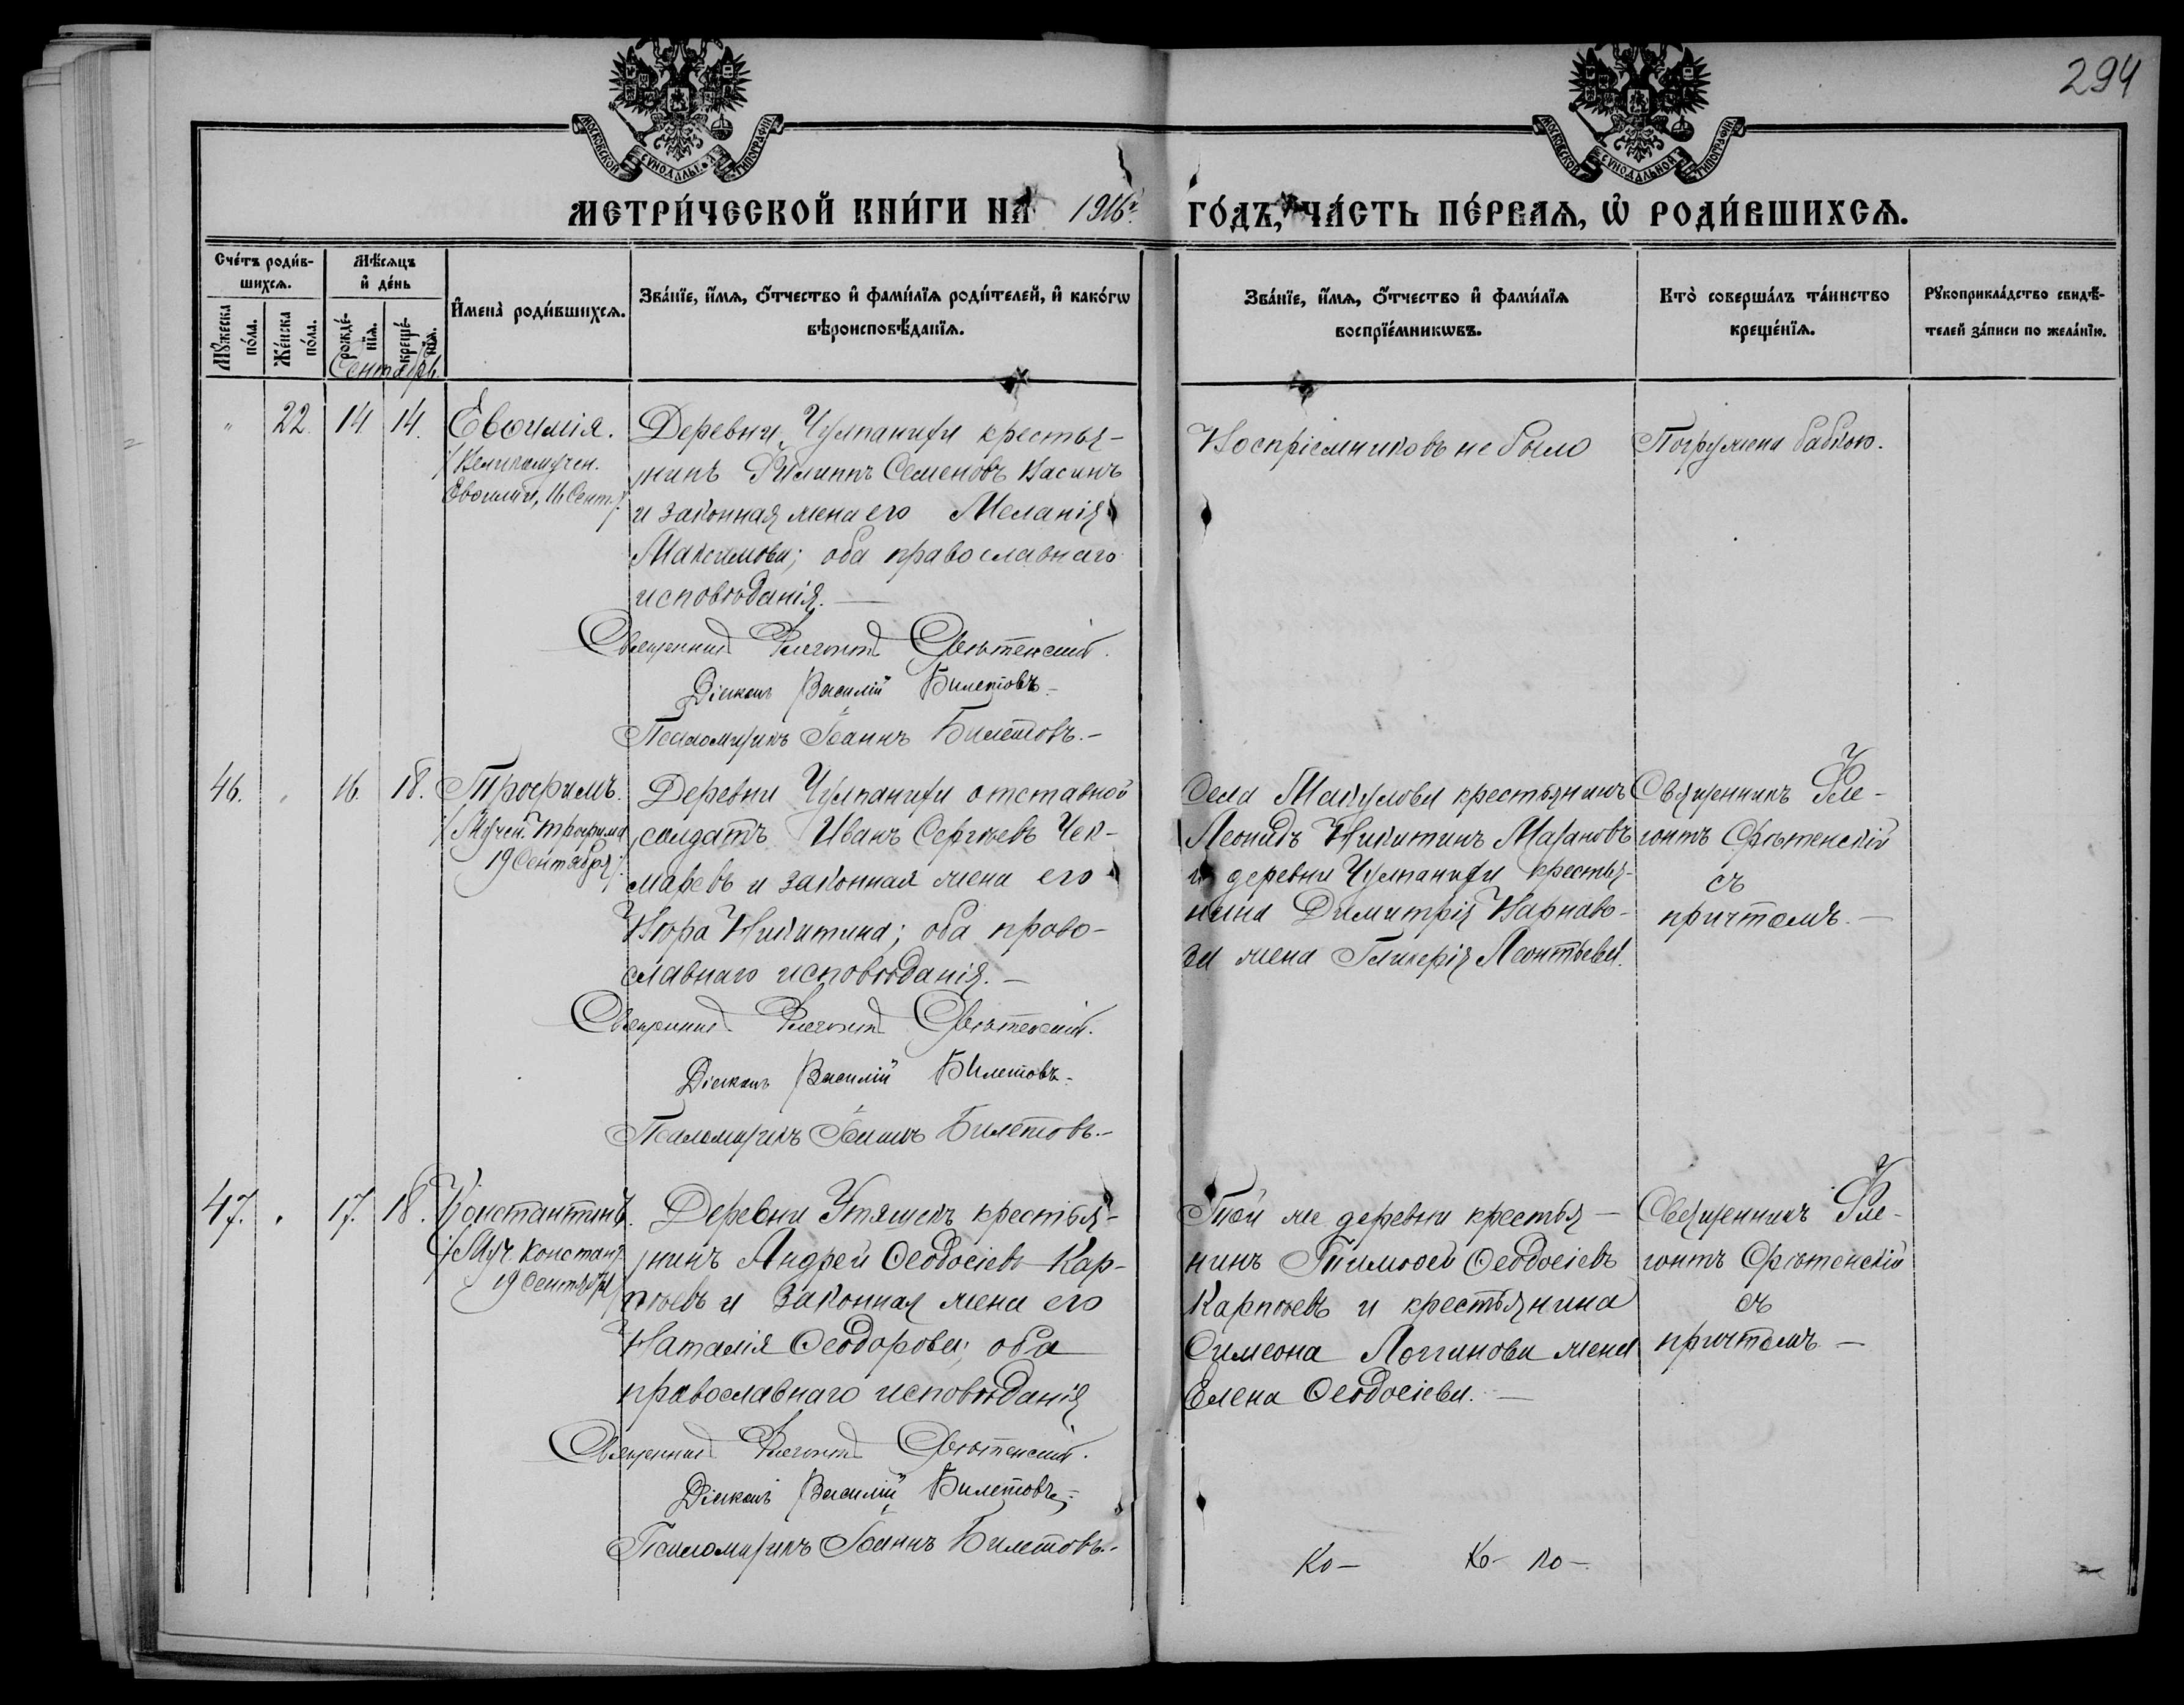 294
МОСКОВСКОЙ СѴНОДАЛЬНОЙ ТИПОГРАФІИ
МОСКОВСКОЙ СѴНОДАЛЬНОЙ ТИПОГРАФІИ
МЕТРИ́ЧЕСКОЙ КНИ́ГИ НА 1916 г. ГО́ДЪ, ЧА́СТЬ ПЕ́РВАѦ, Ѡ҆ РОДИ́ВШИХСѦ.
Сче́тъ роди́в-
шихсѧ.
Мꙋ́жеска по́ла.
Же́нска по́ла.
Мѣ́сѧцъ
и҆ де́нь
рожде́-
нїѧ.
креще́-
нїѧ.
И҆мена̀ роди́вшихсѧ.
Зва́нїе, и҆́мѧ, ѻ҆́тчество и҆ фами́лїѧ роди́телей, и҆ како́гѡ
вѣроисповѣ́данїѧ.
Зва́нїе, и҆́мѧ, ѻ҆́тчество и҆ фами́лїѧ
воспрїе́мникѡвъ.
Кто̀ соверша́лъ та́инство
креще́нїѧ.
Рꙋкоприкла́дство свидѣ́-
телей за́писи по жела́нїю.
Сентябрь.
" 22. 14 14. Евѳимія.
/:Великомучен.
Евѳиміи, 16 Сент.:/
Деревни Чулпанихи крестья-
нинъ Филиппъ Семеновъ Васинъ
и законная жена его Меланія
Максимова; оба православнаго
исповѣданія. —
Священникъ Флегонтъ Срѣтенскій.
Діаконъ Василій Билетовъ.
Псаломщикъ Іоаннъ Билетовъ. –
Воспріемниковъ не было
Погружена бабкою.
46. " 16. 18. Трофимъ.
/:Мучен. Трофима
19 Сентября:/
Деревни Чулпанихи отставной
солдатъ Иванъ Сергѣевъ Чек-
маревъ и законная жена его
Никитина; оба право-
славнаго исповѣданія. —
Священникъ Флегонтъ Срѣтенскій.
Діаконъ Василій Билетовъ.
Псаломщикъ Іоаннъ Билетовъ. –
Села Макулова крестьянинъ
Леонидъ Никитинъ Мазановъ
и деревни Чулпанихи крестья-
нина Димитрія
жена Гликерія Леонтьева.
Священникъ Фле-
гонтъ Срѣтенскій
съ
причтомъ. —
47. " 17. 18. Константинъ.
/:Муч. Констант.
19 Сентября:/
Деревни Утяшекъ крестья-
нинъ Андрей Ѳеодосіевъ Кар-
пѣевъ и законная жена его
Наталія Ѳеодорова; оба
православнаго исповѣданія
Священникъ Флегонтъ Срѣтенскій.
Діаконъ Василій Билетовъ.
Псаломщикъ Іоаннъ Билетовъ. –
Той же деревни крестья-
нинъ Тимоѳей Ѳеодосіевъ
Карпѣевъ и крестьянина
Симеона Логгинова жена
Елена Ѳеодосіева. —
Священникъ Фле-
гонтъ Срѣтенскій
съ
причтомъ. —
Ко – Ко – Ко –